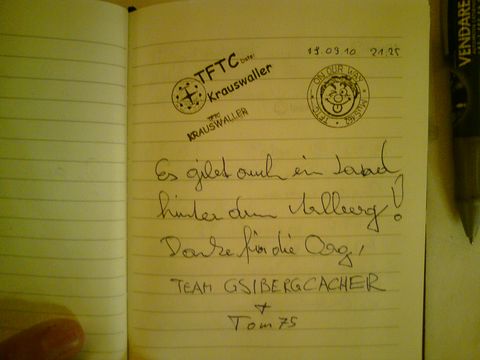 19.03.10 21.25
TFTC
Krauswaller
TFTC
KRAUSWALLER
ON OUR WAY
TFTC
Es gibt auch ein Land
hinter dem Arlberg!
Danke für die Org,
TEAM GSIBERGCACHER
+
Tom75
VENDARE